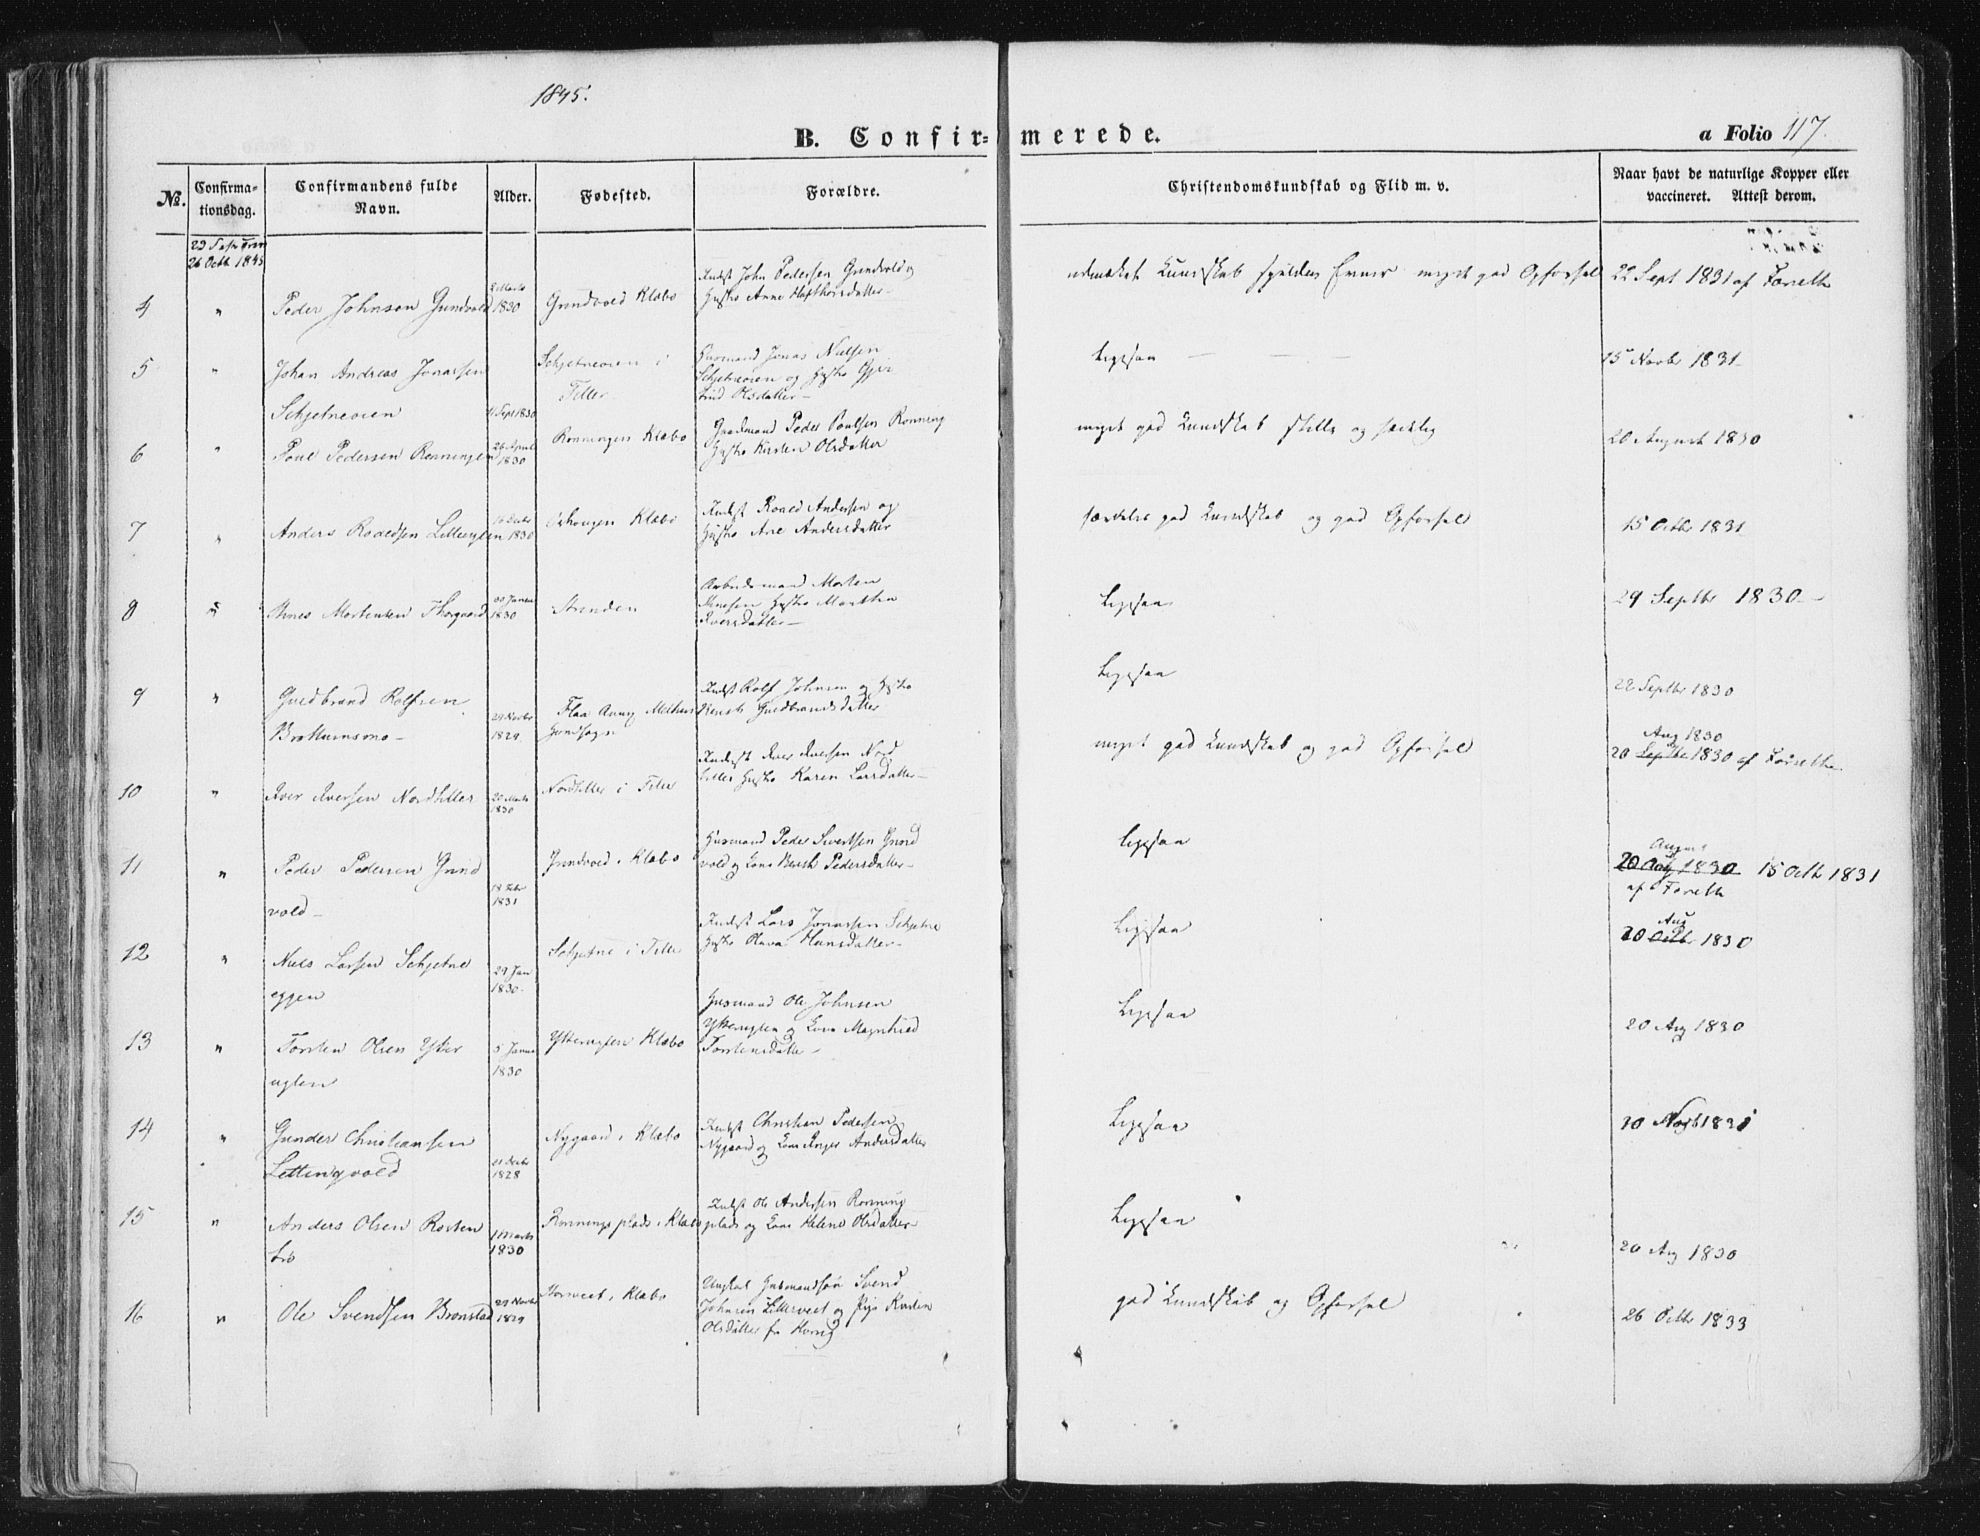 1845.
B. Confir=merede.
a Folio 117.
No.
Confirma-
tionsdag.
Confirmandens fulde
Navn.
Alder.
Fødested.
Forældre.
Christendomskundskab og Flid m. v.
Naar havt de naturlige Kopper eller
vaccineret. Attest derom.
26 Octb 1845
4 " Peder Johnsen Grindvold
Marts 1830
Grindvold Klæbo
Indst John Pedersen Grindvold og
Hustro Anne
Kundskab Evner meget god Opførsel
22 Sept 1831 af Forseth
5 " Johan Andreas Jonassen
Schjetneoien
11 Sept 1830
Schjetneoien i
Tiller
Huusmand Jonas Nielsen
Schjetneoien og Hustro
Olsdatter
Ligesaa
15 Novbr 1831
6 " Poul Pedersen Rønningen
26 April
1830
Rønningen Klæbo
Gaardmand Peder Poulsen Rønning
Hustro Kirsten Olsdatter
meget god Kundskab stille og sædelig
20 August 1830
7 " Anders Roaldsen Litleuglen
1830
Klæbo
Indst Roald Andersen og
Hustro Ane Andersdatter
særdeles god Kundskab og god Opførsel
15 Octbr 1831
8 " Mortensen
30 Januar
1830
Arbeidsmand Morten
Hustro Martha
Iversdatter
Ligesaa
29 Septbr 1830
9 " Guldbrand Rolfsen
Brøttumsmo
29 Novbr
1829
Flaa Melhuus
Indst Rolf Johnsen og Hustro
Berith Guldbrandsdatter
Ligesaa
22 Septbr 1830
10 " Iver Iversen Nordtiller
20 Marts
1830
Nordtiller i Tiller
Indst Iver Iversen Nord
tiller Hustro Karen Larsdatter
meget god Kundskab og god Opførsel
Aug 1830
20 Septbr 1830 af Forseth
11 " Peder Pedersen Grind
vold
18 Febr
1831
Grindvold i Klæbo
Huusmand Peder Sivertsen Grind
vold og Kone Berith Pedersdatter
Ligesaa
August
20 Aug 1830 15 Octb 1831
af Forseth
12 " Niels Larsen Schjetne
eggen
29 Jan
1830
Schjetne i Tiller
Indst Lars Jonassen Schjetne
Hustro Olava Hansdatter
Ligesaa
Aug
20 Octb 1830
13 " Torsten Olsen Ytter
uglen
5 Januar
1830
Ytteruglen Klæbo
Huusmand Ole Johnsen
Ytteruglen og Kone Magnhild
Torstensdatter
Ligesaa
20 Aug 1830
14 " Gunder Christiansen
Lettingvold
21 Decbr
1828
Nygaard i Klæbo
Indst Christian Pedersen
Nygaard og Kone Inger Andersdatter
Ligesaa
10 1831
15 " Anders Olsen Rosten
bro
1 Marts
1830
Rønningsplads i Klæbo
Indst Ole Andersen Rønning
plads og Kone Helene Olsdatter
Ligesaa
20 Aug 1830
16 " Ole Svendsen Brønstad
29 Novbr
1829
Storveet i Klæbo
Ungkarl Huusmandssøn Svend
Johnsen Litleveet og Pige Kirsten
Olsdatter fra
god Kundskab og Opførsel
26 Octbr 1833